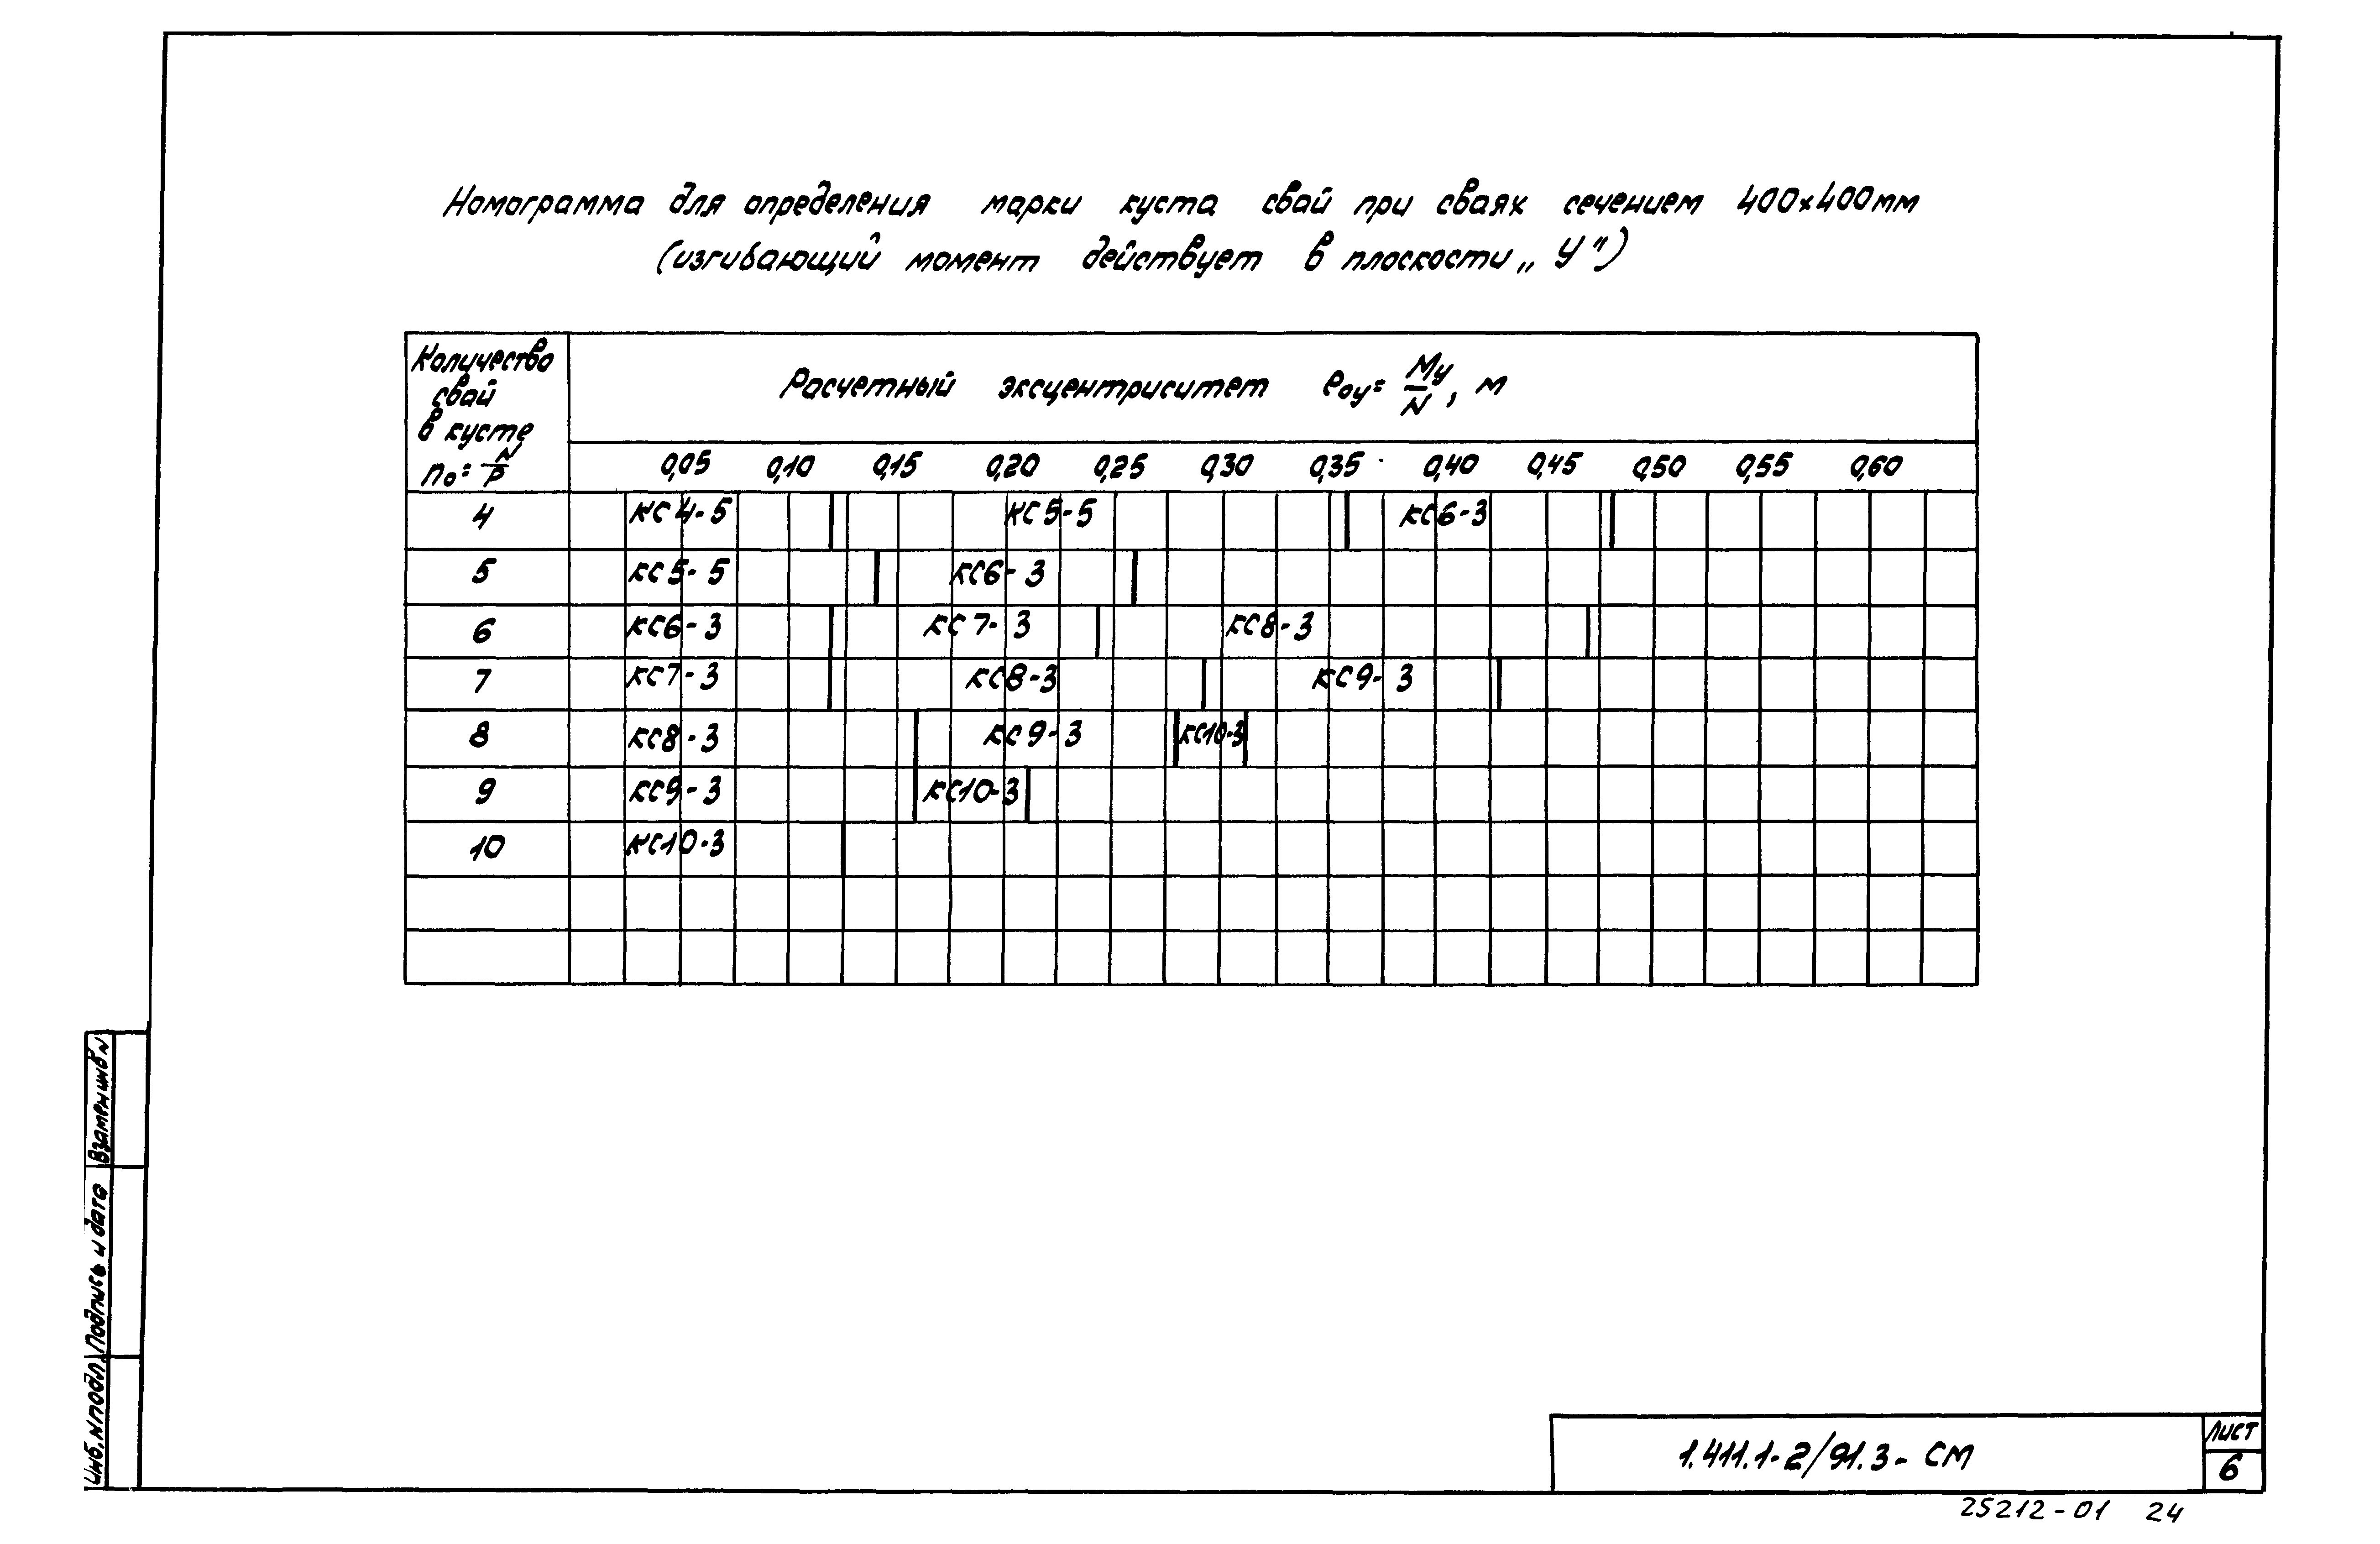 Номограмма для определения марки куста свай при сваях сечением 400×400мм
(изгибающий момент действует в плоскости „У")
Количество
свай
в кусте
n₀ = N/P
Расчетный эксцентриситет e₀у = Mу/N, м
0,05 0,10 0,15 0,20 0,25 0,30 0,35 0,40 0,45 0,50 0,55 0,60
4 КС4-5 КС5-5 КС6-3
5 КС5-5 КС6-3
6 КС6-3 КС7-3 КС8-3
7 КС7-3 КС8-3 КС9-3
8 КС8-3 КС9-3 КС10-3
9 КС9-3 КС10-3
10 КС10-3
Взамен инв N
Подпись и дата
Инв. N подл.
1.411.1-2/91.3-СМ
Лист
6
25212-01 24